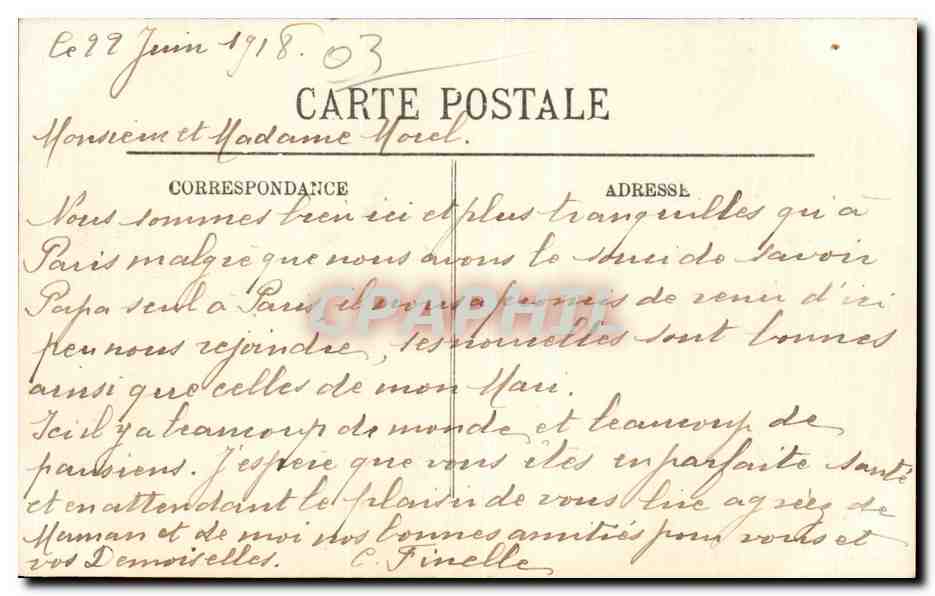 Le 22 Juin 1918. 03
CARTE POSTALE
Monsieur et Madame Morel.
CORRESPONDANCE
ADRESSE
Nous sommes bien ici et plus tranquilles qu'à
Paris malgré que nous avons le souci de savoir
Papa seul à Paris, il nous a promis de venir d'ici
peu nous rejoindre, ses nouvelles sont bonnes
ainsi que celles de mon Mari.
Ici il y a beaucoup de monde et beaucoup de
parisiens. J'espère que vous êtes en parfaite santé
et en attendant le plaisir de vous lire agréez de
Maman et de moi nos bonnes amitiés pour vous et
vos Demoiselles. C. Finelle
CPAPHIL